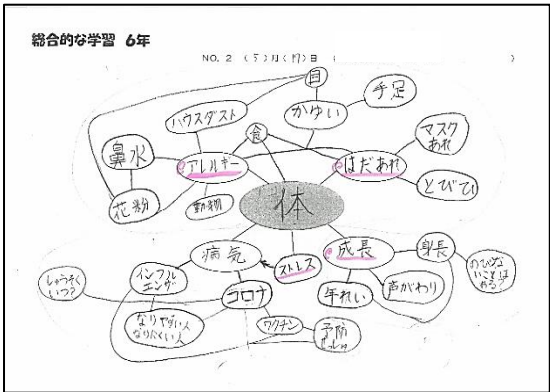 総合的な学習 6年
NO. 2 (5)月(19)日 ( )
目
手足
ハウスダスト
かゆい
食
マスク
あれ
鼻水
アレルギー
はだあれ
とびひ
花粉
動物
体
病気
ストレス
成長
身長
のびない
ことは
ある?
しゅうそく
いつ?
インフル
エンザ
コロナ
年れい
声がわり
なりやすい人
なりにくい人
ワクチン
予防